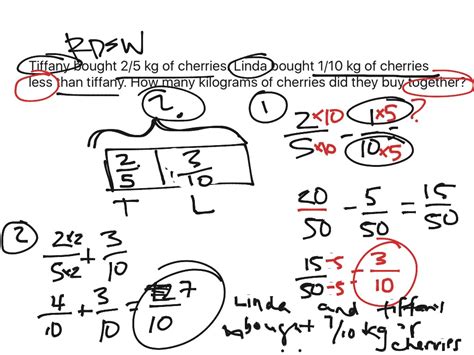 RDSW
Tiffany bought 2/5 kg of cherries. Linda bought 1/10 kg of cherries
less than tiffany. How many kilograms of cherries did they buy together?
? ①
2×10/5×10 - 1×5/10×5 ?
2/5 | 3/10
T L
20/50 - 5/50 = 15/50
② 2×2/5×2 + 3/10
15-5/50-5 = 3/10
4/10 + 3/10 = 7/10
Linda and tiffani
bought 7/10 kg of
cherries